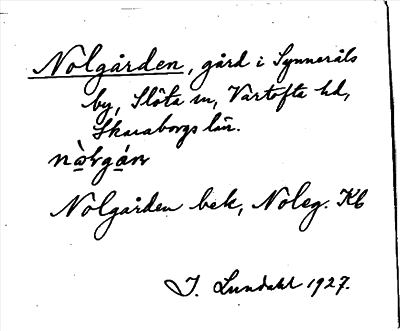 Nolgården, gård i Synneråls
by, Slöta sn, Vartofta hd,
Skaraborgs län.
Nolgården bek, Noleg. Kb
J. Lundahl 1927.